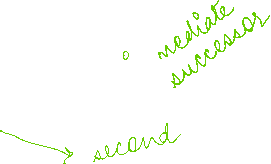 mediate
successor
second